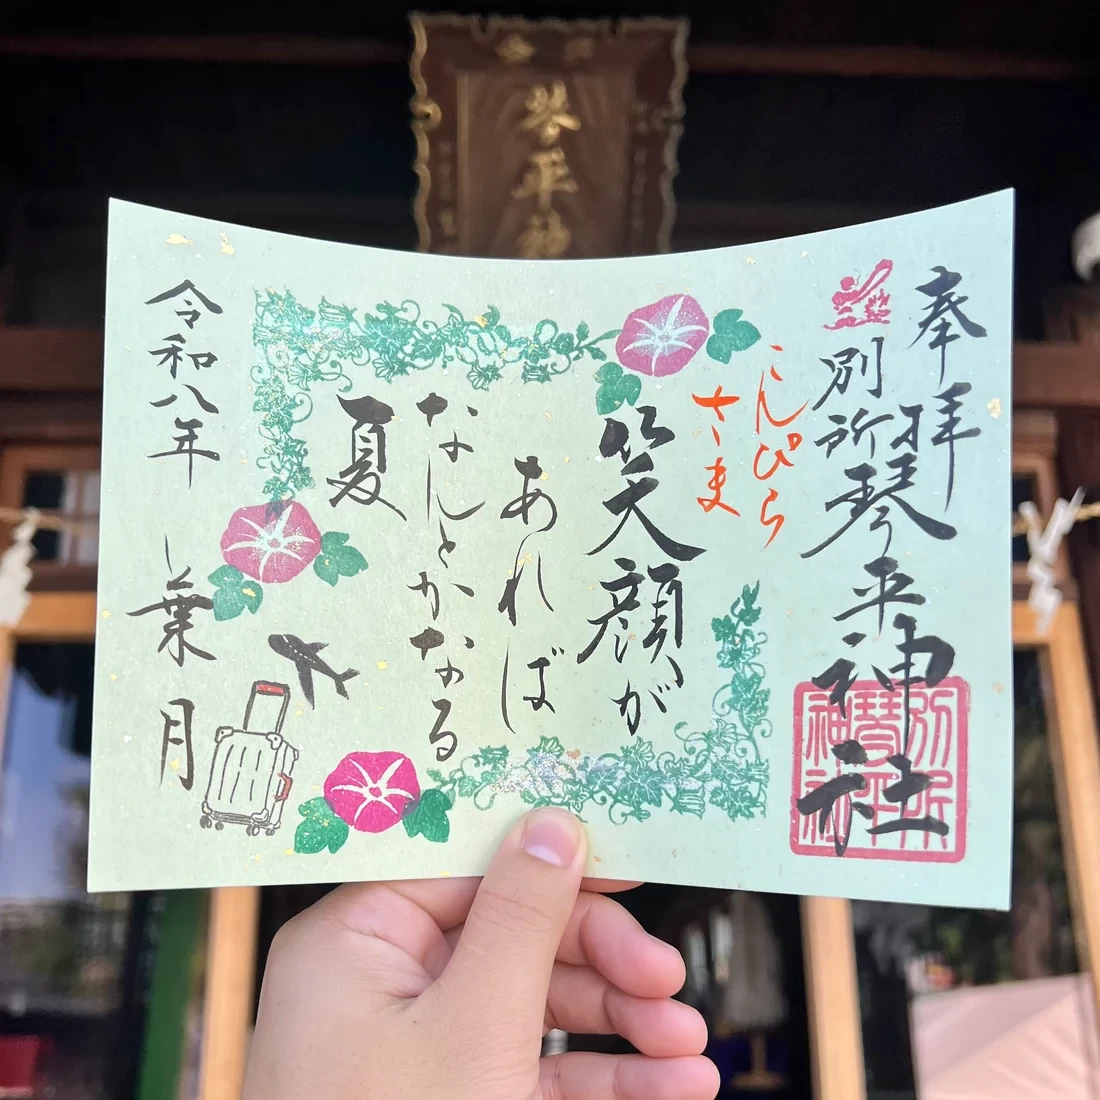 琴平神
奉拝
別所琴平神社
別所
琴平
神社
こんぴら
さま
笑顔が
あれば
なんとかなる
夏
令和八年
葉月